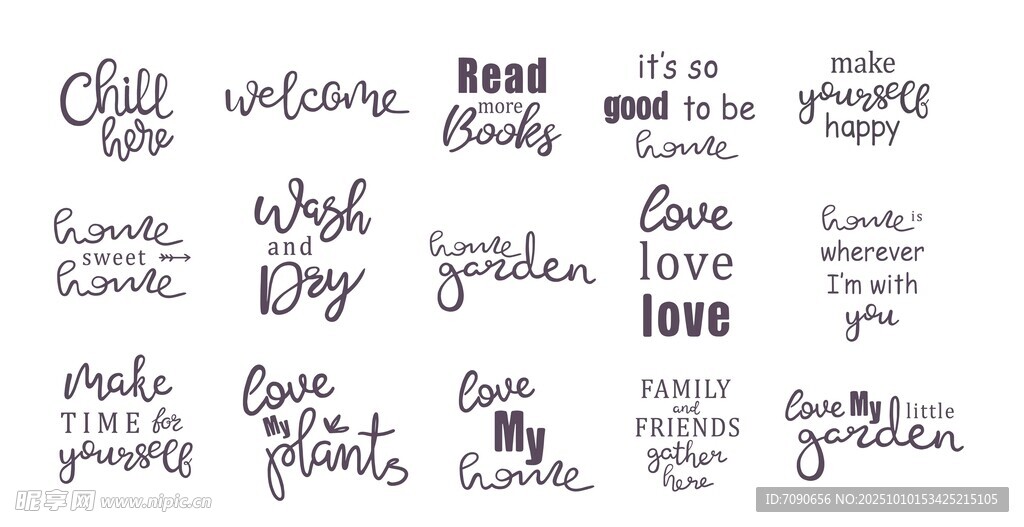 Chill
here
welcome
Read
more
Books
it's so
good to be
home
make
yourself
happy
home
sweet
home
Wash
and
Dry
home
garden
love
love
love
home is
wherever
I'm with
you
Make
TIME for
yourself
love
My
plants
love
My
home
FAMILY
and
FRIENDS
gather
here
love My little
garden
昵享网 www.nipic.cn
ID:7090656 NO:20251010153425215105